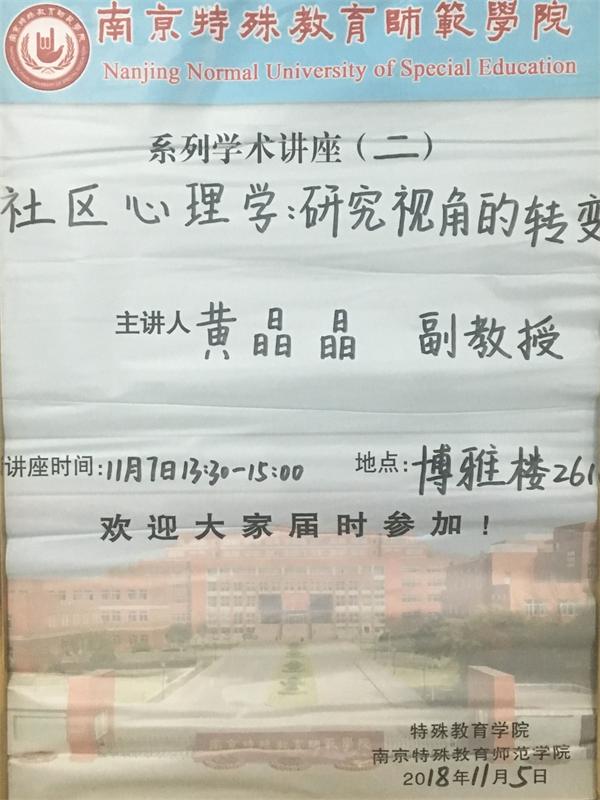 南京特殊教育師範學院
Nanjing Normal University of Special Education
系列学术讲座（二）
社区心理学:研究视角的转变
主讲人 黄晶晶 副教授
讲座时间:11月7日13:30-15:00 地点:博雅楼261
欢迎大家届时参加！
特殊教育学院
南京特殊教育师范学院
2018年11月5日